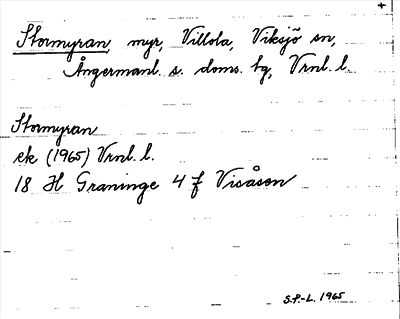 +
Stormyran, myr, Villola, Viksjö sn,
Ångermanl. s. doms. tg, Vrnl. l.
Stormyran
ek (1965) Vrnl. l.
18 H Graninge 4 f Visåsen
S.P.-L. 1965